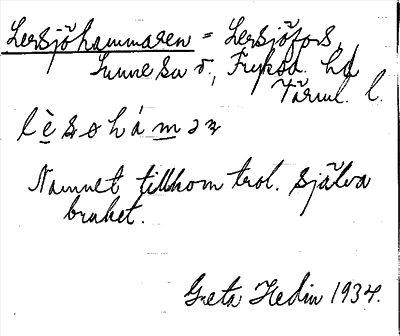 Lersjöhammaren = Lersjöfors,
Sunne sn ö., Fryksd. hd
Värml. l.
lèsøhámən
Namnet tillkom trol. själva
bruket.
Greta Hedin 1934.